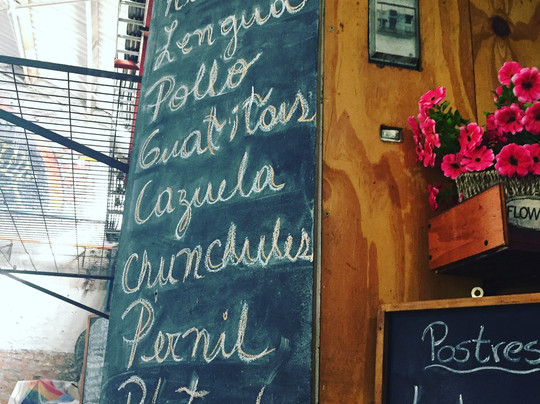 Lengua
Pollo
Guatitas
Cazuela
Chunchules
Pernil
FLOW
Postres